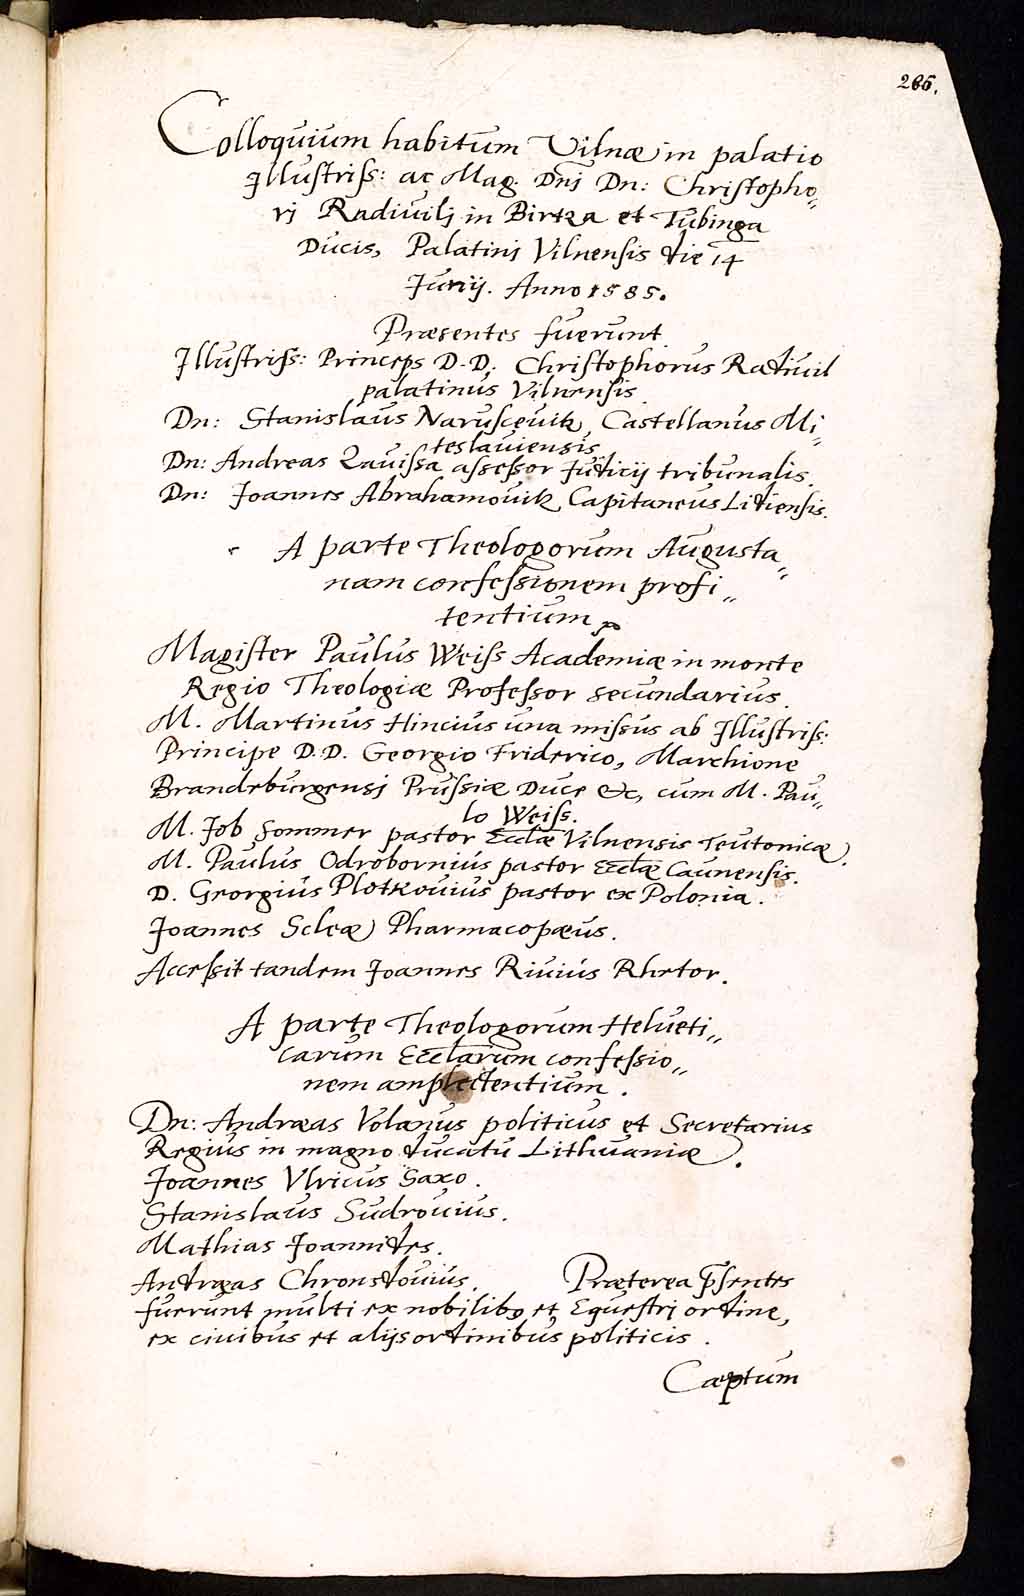 286.
Colloquium habitum Vilnæ in palatio
Illustriss: ac Mag. Dnj Dn: Christopho„
rj Radivilj in Birtza et Tubinga
Ducis, Palatinj Vilnensis die 14
Junij. Anno 1585.
Præsentes fuerunt.
Illustriss: Princeps D.D. Christophorus Radivil
palatinus Vilnensis.
Dn: Stanislaus Naruscevitz Castellanus Mi„
teslaviensis
Dn: Andreas Zavissa assessor Judicij tribunalis.
Dn: Joannes Abrahamovitz Capitaneus Lidiensis.
A parte Theologorum Augusta„
nam confessionem profi„
tentium
Magister Paulus Weiss Academiæ in monte
Regio Theologiæ Professor secundarius.
M. Martinus Hincius una missus ab Illustriss:
Principe D.D. Georgio Friderico, Marchione
Brandeburgensj Prussiæ Duce &c, cum M. Pau„
lo Weiss.
M. Job Sommer pastor Ecclæ Vilnensis Teutonicæ.
M. Paulus Odrobornius pastor Ecclæ Caunensis.
D. Georgius Plotkovius pastor ex Polonia.
Joannes Scleæ Pharmacopæus.
Accessit tandem Joannes Rivius Rhetor.
A parte Theologorum Helveti„
carum Ecclarum confessio„
nem amplectentium.
Dn: Andræas Volanus politicus et Secretarius
Regius in magno ducatu Lithuaniæ.
Joannes Vlricus Saxo.
Stanislaus Sudrovius.
Mathias Joannides.
Andræas Chronstovius. Præterea p̃sentes
fuerunt multi ex nobilibꝯ et Equestrj ordine,
ex civibus et alijs ordinibus politicis.
Cæptum